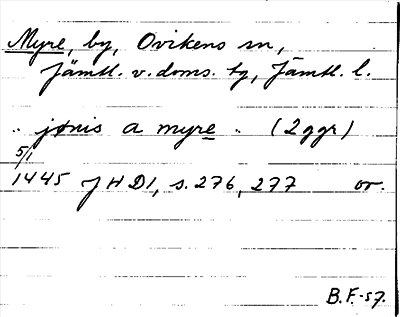 Myre, by, Ovikens sn,
Jämtl. v. doms. tg, Jämtl. l.
.. jonis a myre .. (2 ggr)
5/1
1445 JHD1, s. 276, 277 or.
B.F.-57.